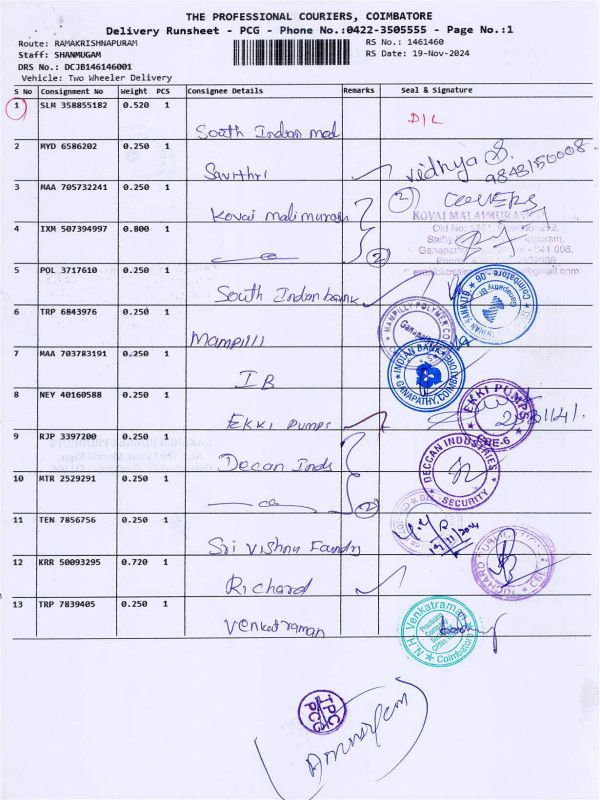 THE PROFESSIONAL COURIERS, COIMBATORE
Delivery Runsheet - PCG - Phone No.:0422-3505555 - Page No.:1
Route: RAMAKRISHNAPURAM RS No.: 1461460
Staff: SHANMUGAM RS Date: 19-Nov-2024
DRS No.: DCJB146146001
Vehicle: Two Wheeler Delivery
S No Consignment No Weight PCS Consignee Details Remarks Seal & Signature
1 SLM 358855182 0.520 1
South Indian med D/L
2 MYD 6586202 0.250 1
Savithri Vidhya S. 9843150008
3 MAA 705732241 0.250 1
Kovai Malimurasu (2) COVERS
KOVAI MALAIMURASU
4 IXM 507394997 0.800 1
(2)
5 POL 3717610 0.250 1
South Indian bank
6 TRP 6843976 0.250 1
Mampilli
7 MAA 703783191 0.250 1
IB INDIAN BANK GANAPATHY, COIMBATORE
8 NEY 40160588 0.250 1
EKKI Pumps EKKI PUMPS
9 RJP 3397200 0.250 1
Deccan Inds DECCAN INDUSTRIES SECURITY
10 MTR 2529291 0.250 1
(2)
11 TEN 7856756 0.250 1
Sri Vishnu Foundry 19/11/2024
12 KRR 50093295 0.720 1
Richard
13 TRP 7839405 0.250 1
Venkatraman N.H. Venkatraman Coimbatore
TPC PCG